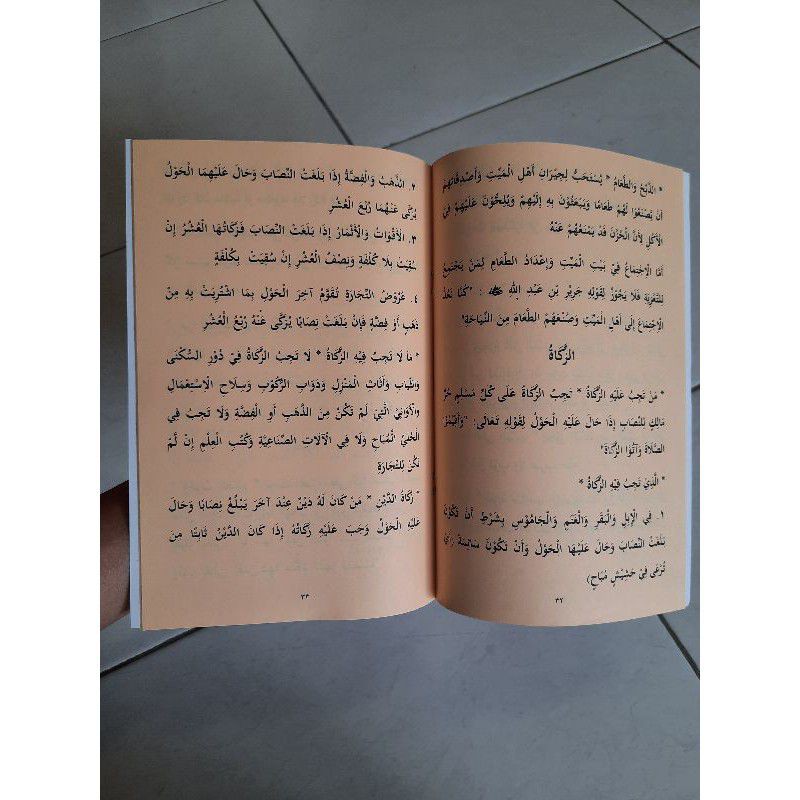 * الذَّبْحُ وَالطَّعَامُ * يُسْتَحَبُّ لِجِيْرَانِ أَهْلِ الْمَيِّتِ وَأَصْدِقَائِهِمْ
أَنْ يَصْنَعُوْا لَهُمْ طَعَامًا وَيَبْعَثُوْنَ بِهِ إِلَيْهِمْ وَيُلِحُّوْنَ عَلَيْهِمْ فِيْ
الْأَكْلِ لِأَنَّ الْحُزْنَ قَدْ يَمْنَعُهُمْ عَنْهُ
أَمَّا الْاِجْتِمَاعُ فِيْ بَيْتِ الْمَيِّتِ وَإِعْدَادُ الطَّعَامِ لِمَنْ يَجْتَمِعُ
لِلتَّعْزِيَةِ فَلَا يَجُوْزُ لِقَوْلِهِ جَرِيْرِ بْنِ عَبْدِ اللهِ : "كُنَّا نَعُدُّ
الْاِجْتِمَاعَ إِلَى أَهْلِ الْمَيِّتِ وَصُنْعَهُمُ الطَّعَامَ مِنَ النِّيَاحَةِ"
الزَّكَاةُ
* مَنْ تَجِبُ عَلَيْهِ الزَّكَاةُ * تَجِبُ الزَّكَاةُ عَلَى كُلِّ مُسْلِمٍ حُرٍّ
مَالِكٍ لِلنِّصَابِ إِذَا حَالَ عَلَيْهِ الْحَوْلُ لِقَوْلِهِ تَعَالَى: "وَأَقِيْمُوْا
الصَّلَاةَ وَآتُوْا الزَّكَاةَ"
* الَّذِيْ تَجِبُ فِيْهِ الزَّكَاةُ *
١. فِي الْإِبِلِ وَالْبَقَرِ وَالْغَنَمِ وَالْجَامُوْسِ بِشَرْطِ أَنْ تَكُوْنَ
بَلَغَتْ النِّصَابَ وَحَالَ عَلَيْهَا الْحَوْلُ وَأَنْ تَكُوْنَ سَائِمَةً (أَيْ
تُرْعَى فِيْ حَشِيْشٍ مُبَاحٍ)
٣٢
٢. الذَّهَبُ وَالْفِضَّةُ إِذَا بَلَغَتْ النِّصَابَ وَحَالَ عَلَيْهِمَا الْحَوْلُ
يُزَكَّى عَنْهُمَا رُبْعُ الْعُشْرِ
٣. الْأَقْوَاتُ وَالْأَثْمَارُ إِذَا بَلَغَتْ النِّصَابَ فَزَكَاتُهَا الْعُشْرُ إِنْ
سُقِيَتْ بِلَا كُلْفَةٍ وَنِصْفُ الْعُشْرِ إِنْ سُقِيَتْ بِكُلْفَةٍ
٤. عُرُوْضُ التِّجَارَةِ تُقَوَّمُ آخِرَ الْحَوْلِ بِمَا اشْتُرِيَتْ بِهِ مِنْ
ذَهَبٍ أَوْ فِضَّةٍ فَإِنْ بَلَغَتْ نِصَابًا يُزَكَّى عَنْهُ رُبْعُ الْعُشْرِ
* مَا لَا تَجِبُ فِيْهِ الزَّكَاةُ * لَا تَجِبُ الزَّكَاةُ فِيْ دُوْرِ السُّكْنَى
وَالثِّيَابِ وَأَثَاثِ الْمَنْزِلِ وَدَوَابِ الرُّكُوْبِ وَسِلَاحِ الْاِسْتِعْمَالِ
وَالْأَوَانِيْ الَّتِيْ لَمْ تَكُنْ مِنَ الذَّهَبِ أَوِ الْفِضَّةِ وَلَا تَجِبُ فِي
الْحُلِيِّ الْمُبَاحِ وَلَا فِي الْآلَاتِ الصِّنَاعِيَّةِ وَكُتُبِ الْعِلْمِ إِنْ لَمْ
تَكُنْ لِلتِّجَارَةِ
* زَكَاةُ الدَّيْنِ * مَنْ كَانَ لَهُ دَيْنٌ عِنْدَ آخَرَ يَبْلُغُ نِصَابًا وَحَالَ
عَلَيْهِ الْحَوْلُ وَجَبَ عَلَيْهِ زَكَاتُهُ إِذَا كَانَ الدَّيْنُ ثَابِتًا مِنَ
٣٣